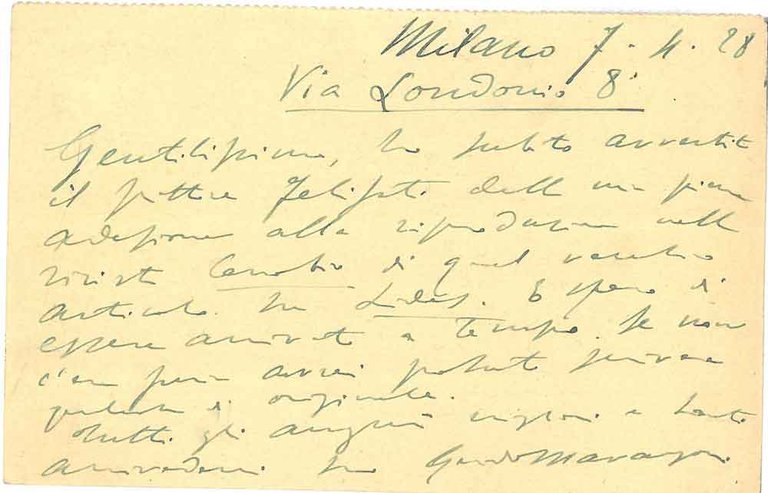 Milano 7. 4. 28
Via Londonio 8
Gentilissimo, ho subito avvertito
il pittore della mia piena
adesione alla riproduzione nella
rivista di quel vecchio
articolo su . E spero di
essere arrivato a tempo. Se non
c'era avrei potuto scrivere
qualcosa di originale.
Tutti gli auguri migliori e tanti
arrivederci suo Guido Marangoni